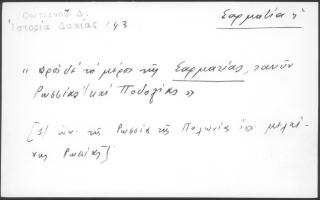 Φωτεινοῦ Δ.
Ἱστορία Δακίας 1,43
Σαρματία ἡ
" πρὸς δὲ τὸ μέρος τῆς Σαρματίας, τανῦν
Ρωσσίας 1) καὶ Ποδολίας "
[1) ἤγ. τῆς Ρωσσίας τῆς Πολωνίας
Ρωσσίας]